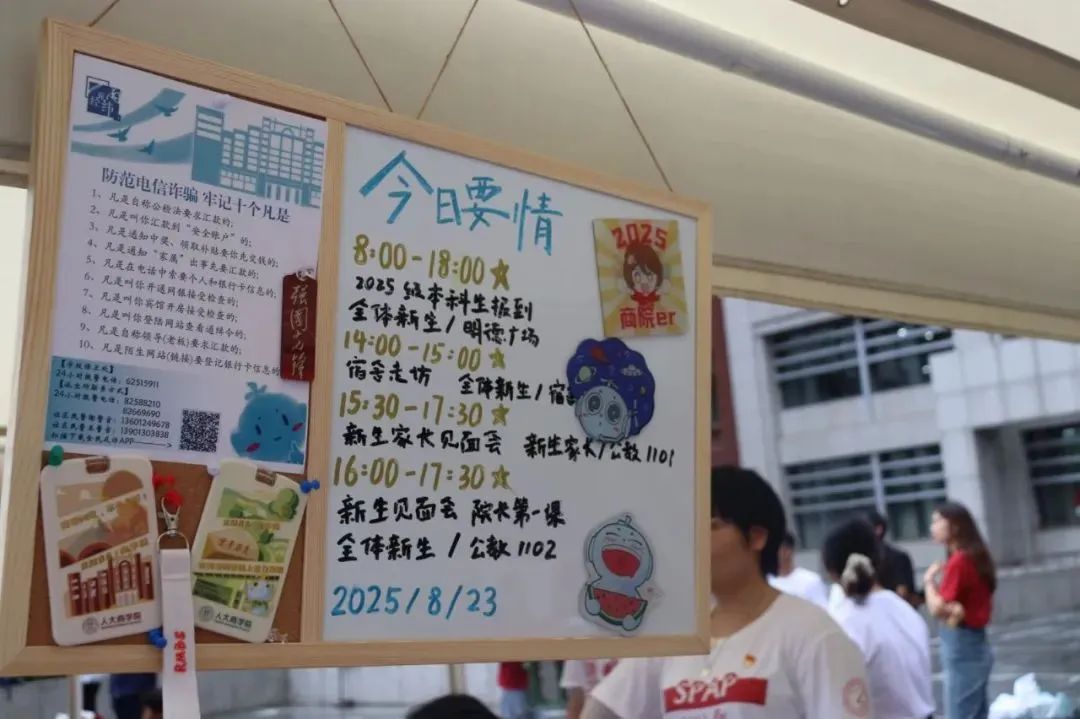 防范电信诈骗 牢记十个凡是
1、凡是自称公检法要求汇款的;
2、凡是叫你汇款到“安全账户”的;
3、凡是通知中奖、领取补贴要你先交钱的;
4、凡是通知“家属”出事先要汇款的;
5、凡是在电话中索要个人和银行卡信息的;
6、凡是叫你开通网银接受检查的;
7、凡是叫你宾馆开房接受检查的;
8、凡是叫你登陆网站查看通缉令的;
9、凡是自称领导(老板)要求汇款的;
10、凡是陌生网站(链接)要登记银行卡信息的
24小时报警电话: 62515911
24小时报警电话: 82588210
82669690
13601249678
13901303838
强国
人大商学院
人大商学院
今日要情
8:00-18:00
2025级本科生报到
全体新生/明德广场
14:00-15:00
宿舍走访 全体新生/宿
15:30-17:30
新生家长见面会 新生家长/公教1101
16:00-17:30
新生见面会 院长第一课
全体新生/公教1102
2025/8/23
2025
商院er
SPAP